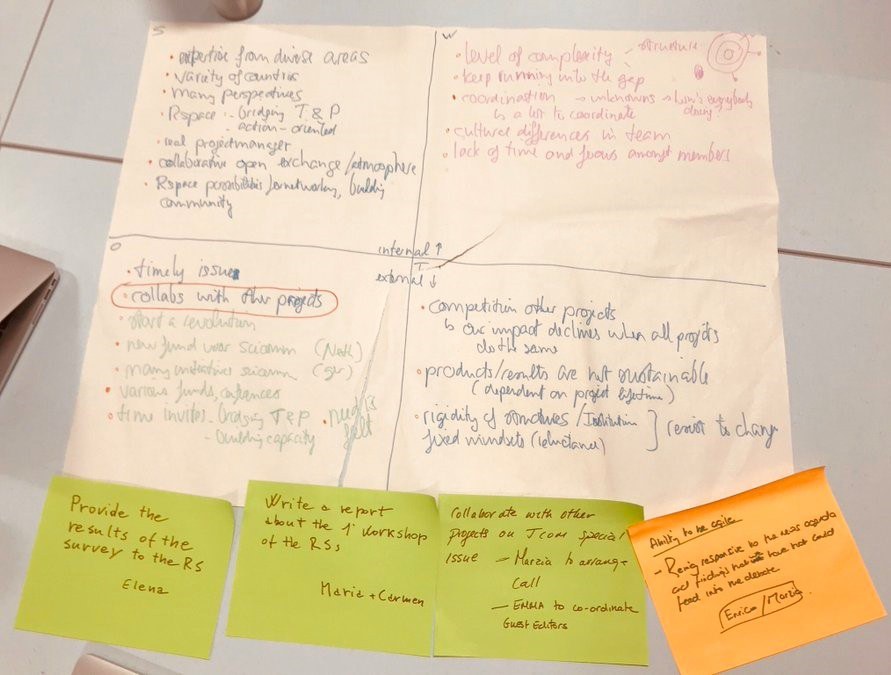 S
• expertise from divose areas
• variety of countries
• many perspectives
• Rspace - bridging T & P
- action-oriented
• real projectmanager
• collaborative open exchange / atmosphere
• Rspace possibilities for networking, building
community
W
• level of complexity - structure
• keep running into the gap
• coordination → unknowns →
is a lot to coordinate
• cultural differences in team
• lack of time and focus amongst members
internal ↑
external ↓
O
• timely issue
• collabs with other projects
• start a revolution
• new fund scicomm
• many initiatives scicomm
• various funds, conferences
• time invites - bridging T & P
- building capacity
• need is
felt
T
• competition other projects
↳ our impact declines when all projects
do the same
• products/results are not sustainable
(dependent on project lifetime)
• rigidity of structures / Institution
fixed mindsets (reluctance)
] resist to change
Provide the
results of the
survey to the RS
Elena
Write a report
about the 1° workshop
of the RSs
Maria + Carmen
Collaborate with other
projects on Jcom special
issue - Marzia to arrange
call
- EMMA to co-ordinate
Guest Editors
Ability to be agile
- Being responsive to the news agenda
and findings have not could
feed into the debate
Enrico / Marzia